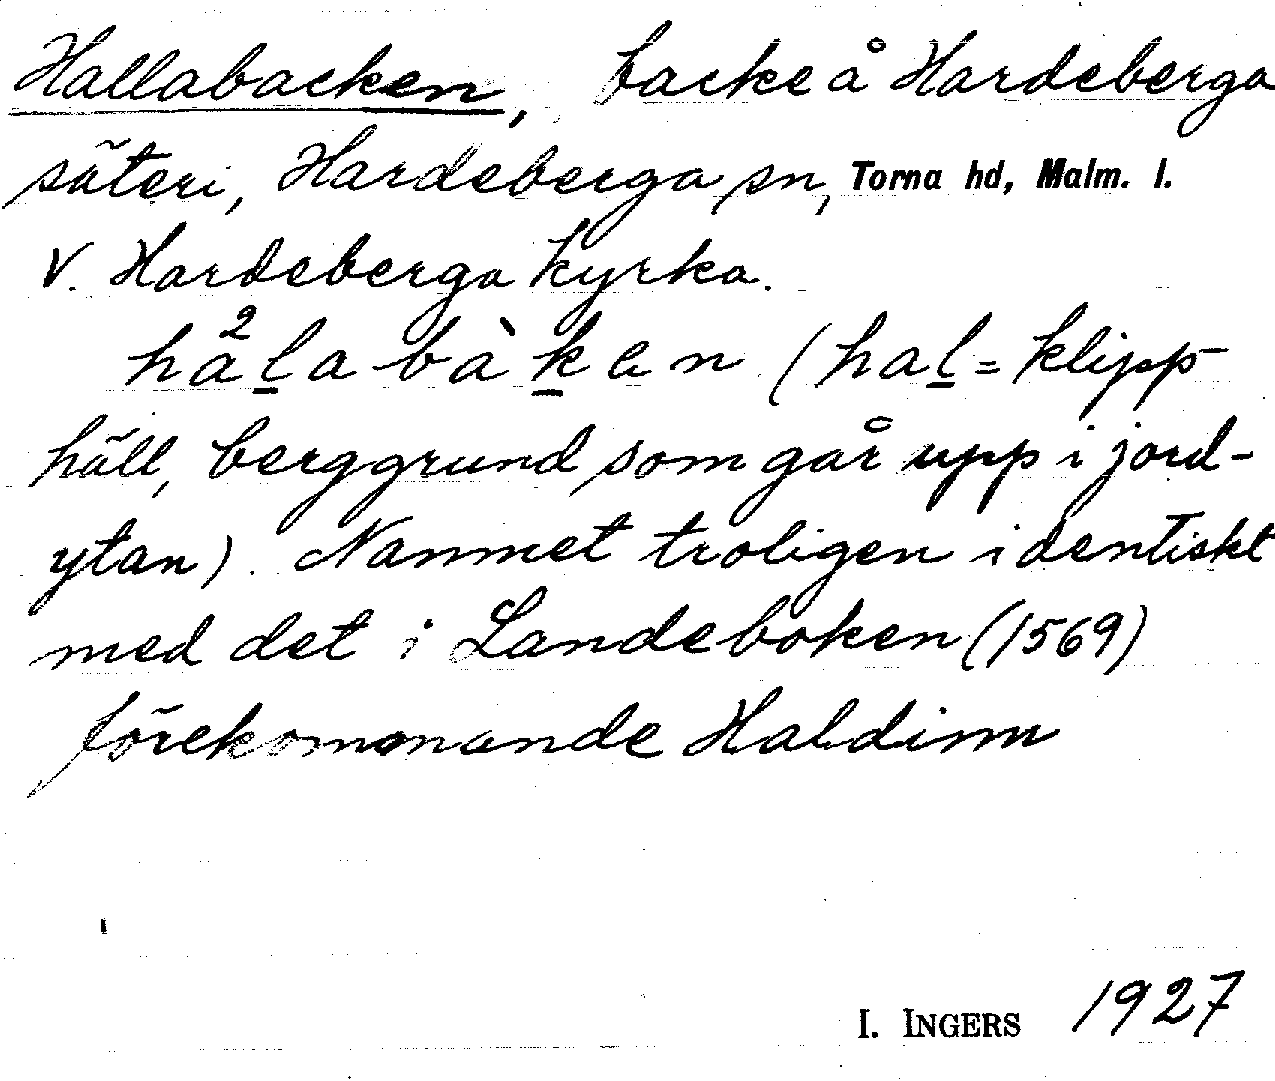 Hallabacken, backe å Hardeberga
säteri, Hardeberga sn, Torna hd, Malm. l.
V. Hardeberga kyrka.
ha²l̲abàk̲en (hal̲ = klipp-
häll, berggrund som går upp i jord-
ytan). Namnet troligen identiskt
med det i Landeboken (1569)
förekommande Haldinn
I. INGERS 1927